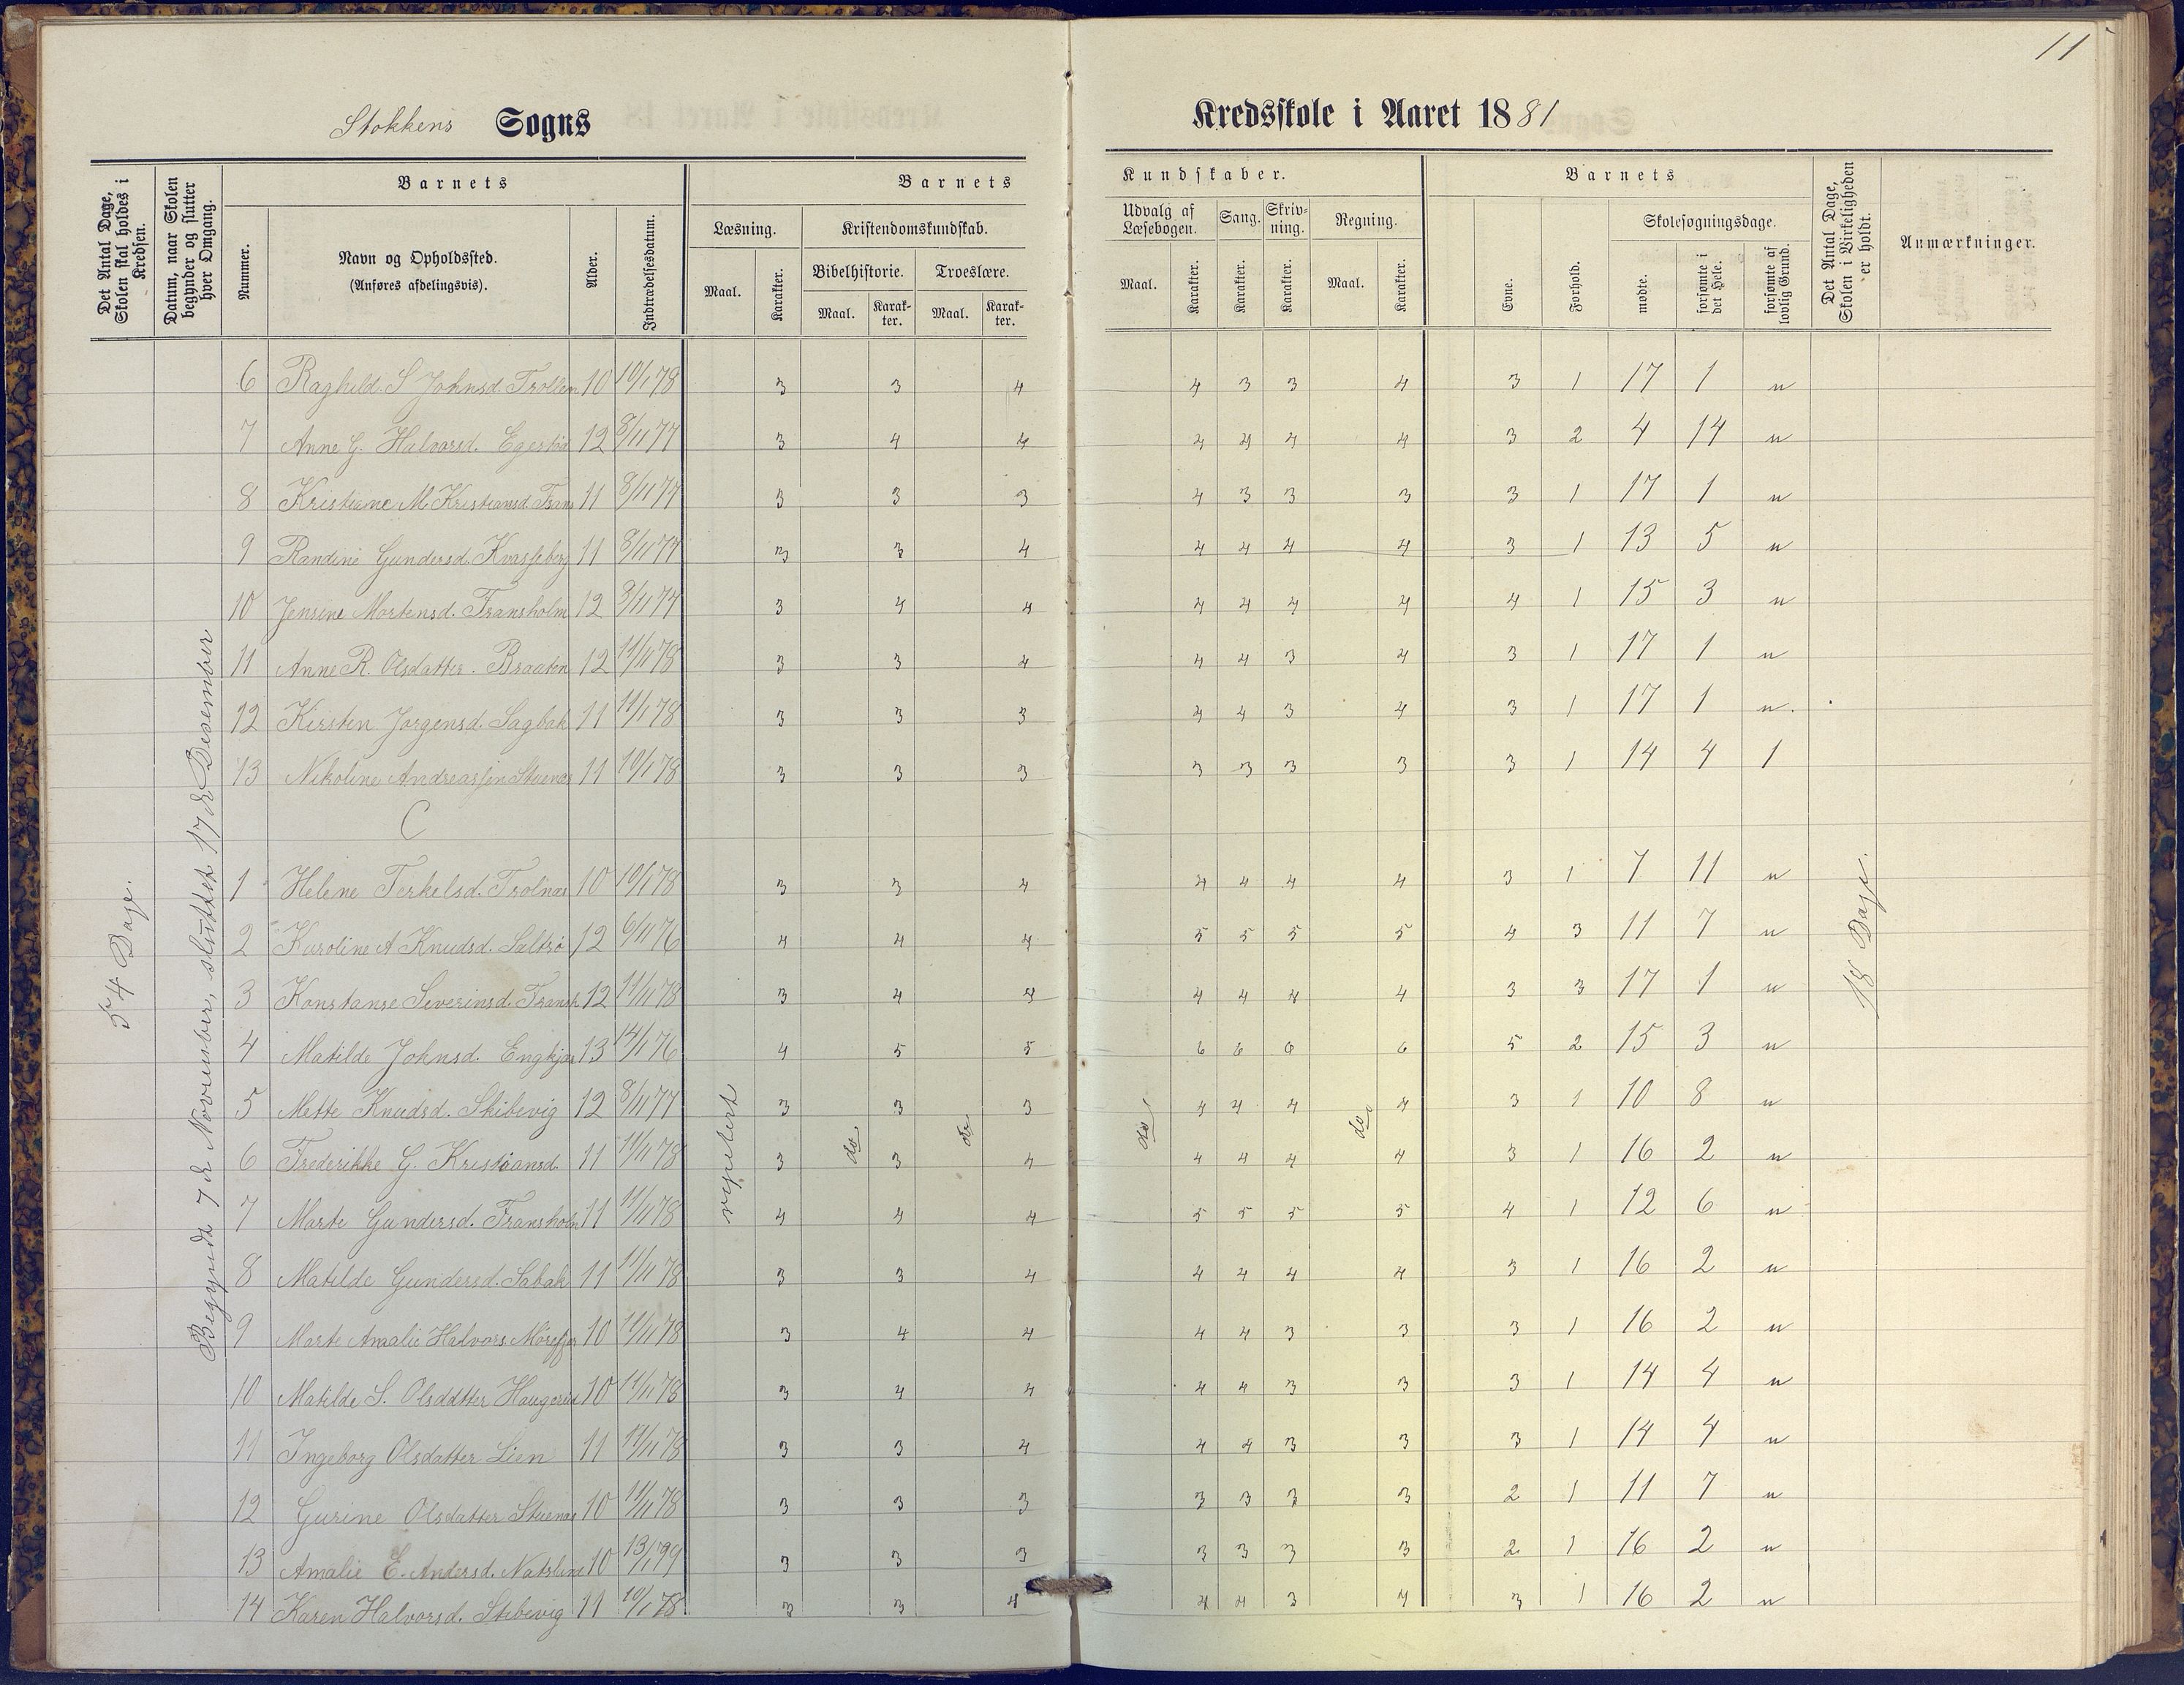 11
Stokkens Sogns Kredsskole i Aaret 1881
Det Antal Dage, Skolen skal holdes i Kredsen.
Datum, naar Skolen begynder og slutter hver Omgang.
Barnets
Nummer.
Navn og Opholdssted.
(Anføres afdelingsvis).
Alder.
Indtrædelsesdatum.
Barnets Kundskaber.
Læsning.
Maal. Karakter.
Kristendomskundskab.
Bibelhistorie. Troeslære.
Maal. Karakter. Maal. Karakter.
Udvalg af Læsebogen. Sang. Skrivning. Regning.
Maal. Karakter. Karakter. Karakter. Maal. Karakter.
Barnets
Evne. Forhold.
Skolesøgningsdage.
mødte. forsømte i det Hele. forsømte af lovlig Grund.
Det Antal Dage, Skolen i Virkeligheden er holdt.
Anmærkninger.
54 Dage.
Begyndt 7de November, sluttet 17de Desember
repetert do do do do
18 Dage.
6 Raghild S Johnsd. 10 10/1 78 3 3 4 4 3 3 4 3 1 17 1 "
7 Anne G. Halvorsd. 12 8/11 77 3 4 4 4 4 4 4 3 2 4 14 "
8 Kristiane M Kristiansd. Frans 11 8/11 77 3 3 3 4 3 3 3 3 1 17 1 "
9 Randine Gundersd. 11 8/11 77 3 3 4 4 4 4 4 3 1 13 5 "
10 Jensine Mortensd. Fransholm 12 8/11 77 3 4 4 4 4 4 4 4 1 15 3 "
11 Anne R. Olsdatter. Braaten 12 11/11 78 3 3 4 4 4 3 4 3 1 17 1 "
12 Kirsten Jørgensd. Sagbak 11 11/1 78 3 3 3 4 4 3 4 3 1 17 1 "
13 Nikoline 11 10/1 78 3 3 3 3 3 3 3 3 1 14 4 1
C
1 Helene Terkelsd. Trolnæs 10 10/1 78 3 3 4 4 4 4 4 3 1 7 11 "
2 Karoline A Knudsd. Saltrø 12 6/11 76 4 4 4 5 5 5 5 4 3 11 7 "
3 Konstanse Severinsd. Fransh 12 11/11 78 3 4 4 4 4 4 4 3 3 17 1 "
4 Matilde Johnsd. Engkjær 13 14/1 76 4 5 5 6 6 6 6 5 2 15 3 "
5 Mette Knudsd. Skibevig 12 8/11 77 3 3 3 4 4 4 4 3 1 10 8 "
6 Frederikke G. Kristiansd. 11 11/11 78 3 3 4 4 4 4 4 3 1 16 2 "
7 Marte Gundersd. Fransholm 11 11/11 78 4 4 4 5 5 5 5 4 1 12 6 "
8 Matilde Gundersd. Sabak 11 11/11 78 3 3 4 4 4 4 4 3 1 16 2 "
9 Marte Amalie Halvors. Mørefjær 10 11/11 78 3 4 4 4 4 3 3 3 1 16 2 "
10 Matilde S. Olsdatter Haugerud 10 11/11 78 3 4 4 4 4 3 3 3 1 14 4 "
11 Ingeborg Olsdatter Lien 11 11/11 78 3 3 4 4 4 3 3 3 1 14 4 "
12 Gurine Olsdatter Stuenæs 10 11/11 78 3 3 3 3 3 3 3 2 1 11 7 "
13 Amalie E. Andersd. 10 13/1 79 3 3 3 3 3 3 3 2 1 16 2 "
14 Karen Halvorsd. Skibevig 11 10/1 78 3 3 4 4 4 3 4 3 1 16 2 "